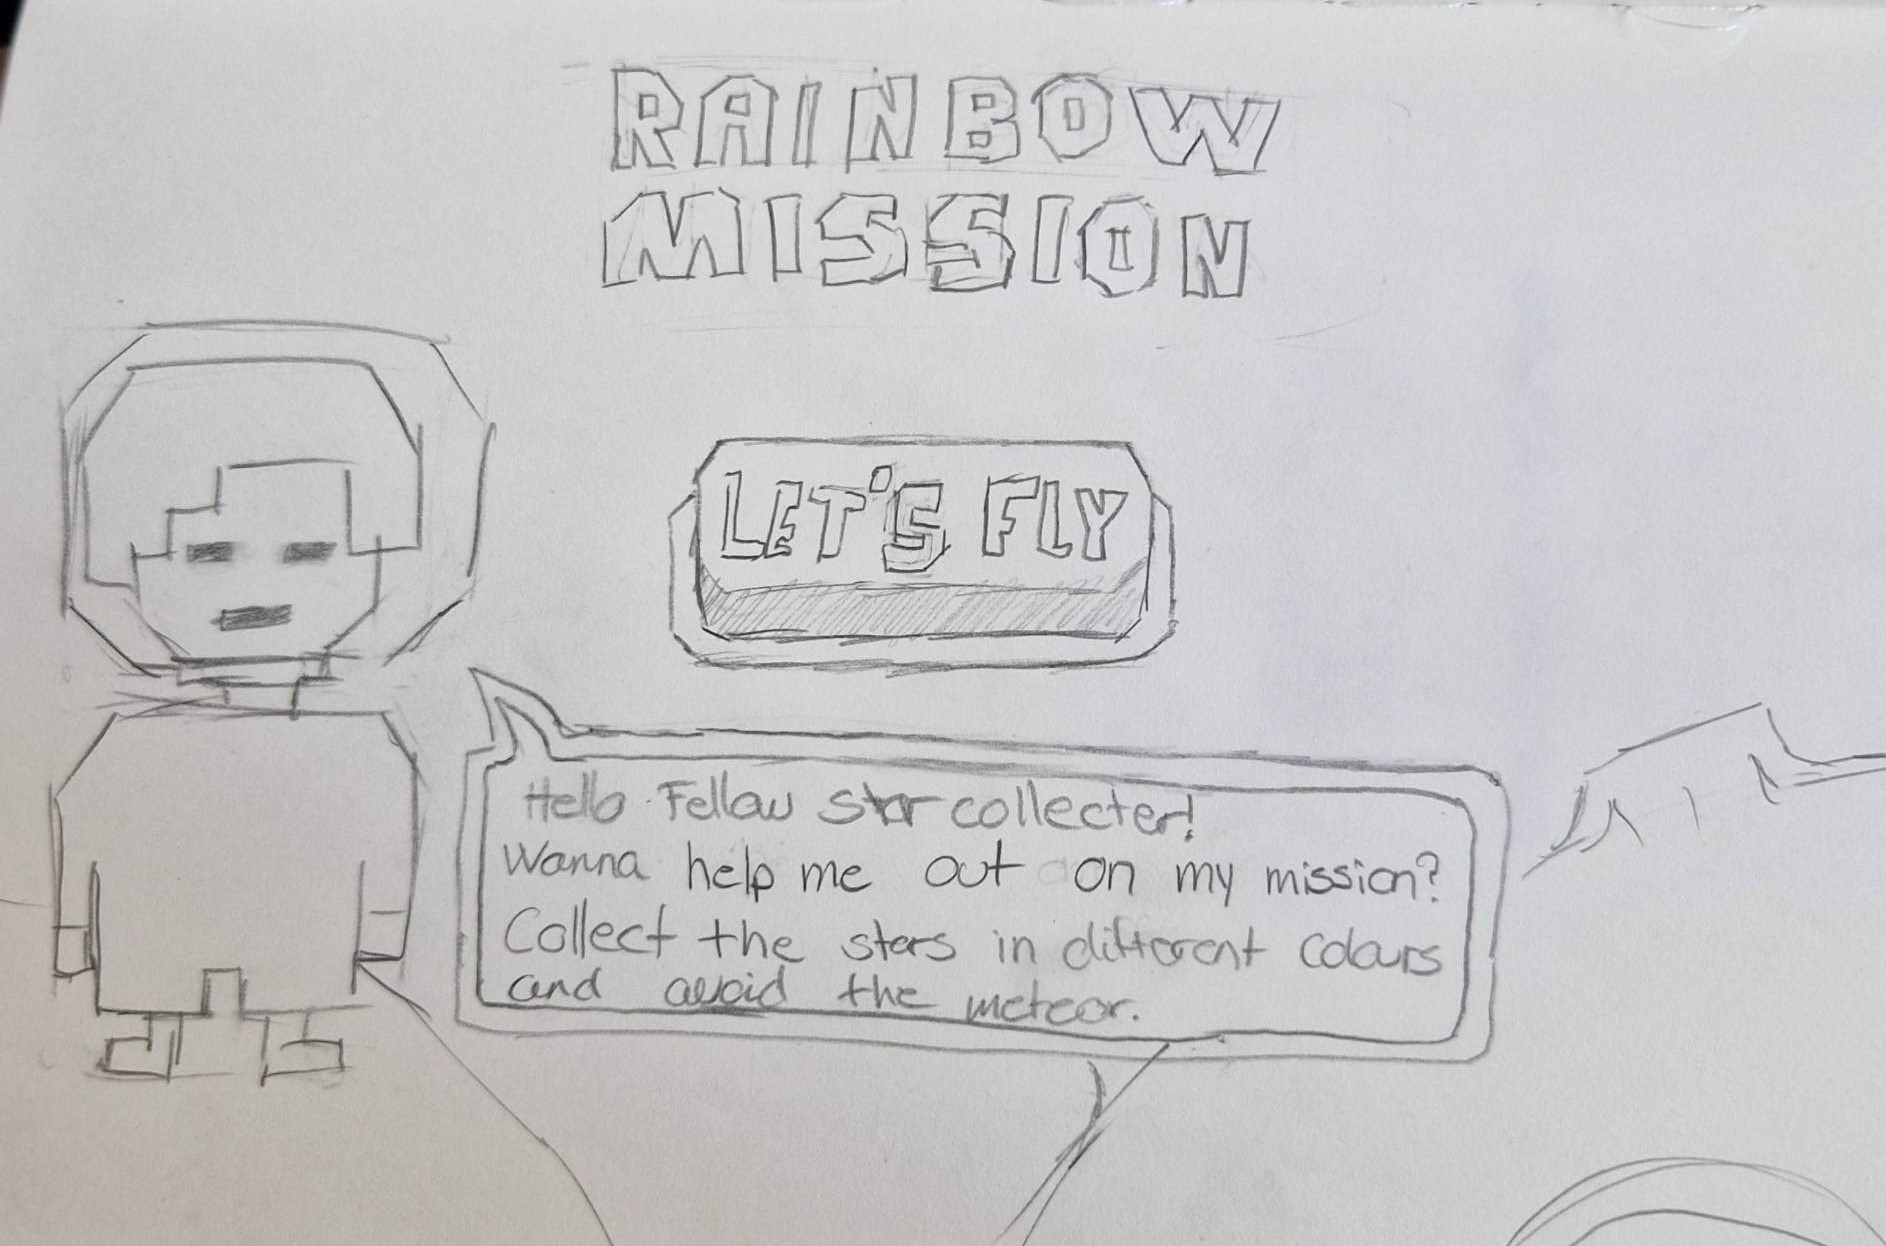 RAINBOW
MISSION
LET'S FLY
Hello Fellow star collecter!
Wanna help me out on my mission?
Collect the stars in different colours
and avoid the meteor.